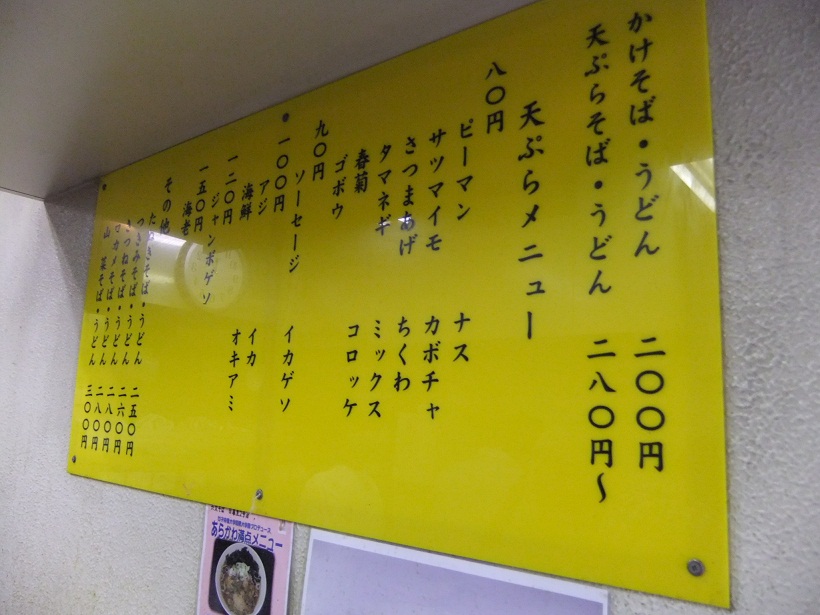 かけそば・うどん 二〇〇円
天ぷらそば・うどん 二八〇円〜
天ぷらメニュー
八〇円
ピーマン ナス
サツマイモ カボチャ
さつまあげ ちくわ
タマネギ ミックス
春菊 コロッケ
ゴボウ
九〇円
ソーセージ イカゲソ
一〇〇円
アジ イカ
海鮮 オキアミ
一二〇円
ジャンボゲソ
一五〇円
海老
その他
たぬきそば・うどん 二五〇円
つきみそば・うどん 二六〇円
きつねそば・うどん 二八〇円
ワカメそば・うどん 二八〇円
山菜そば・うどん 三〇〇円
あらかわ満点メニュー